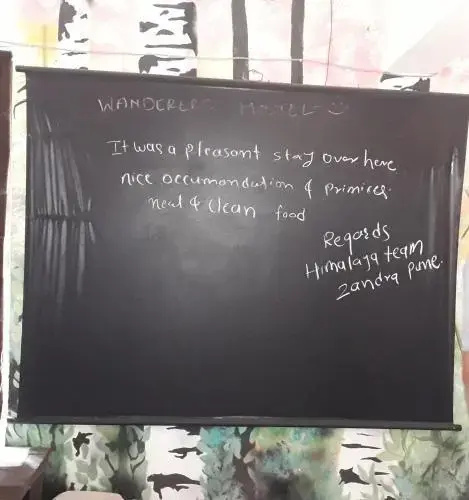 WANDERERS HOSTEL
It was a pleasant stay over here
nice accumondation & primices.
neat & clean food
Regards
Himalaya team
Zandra Pune.